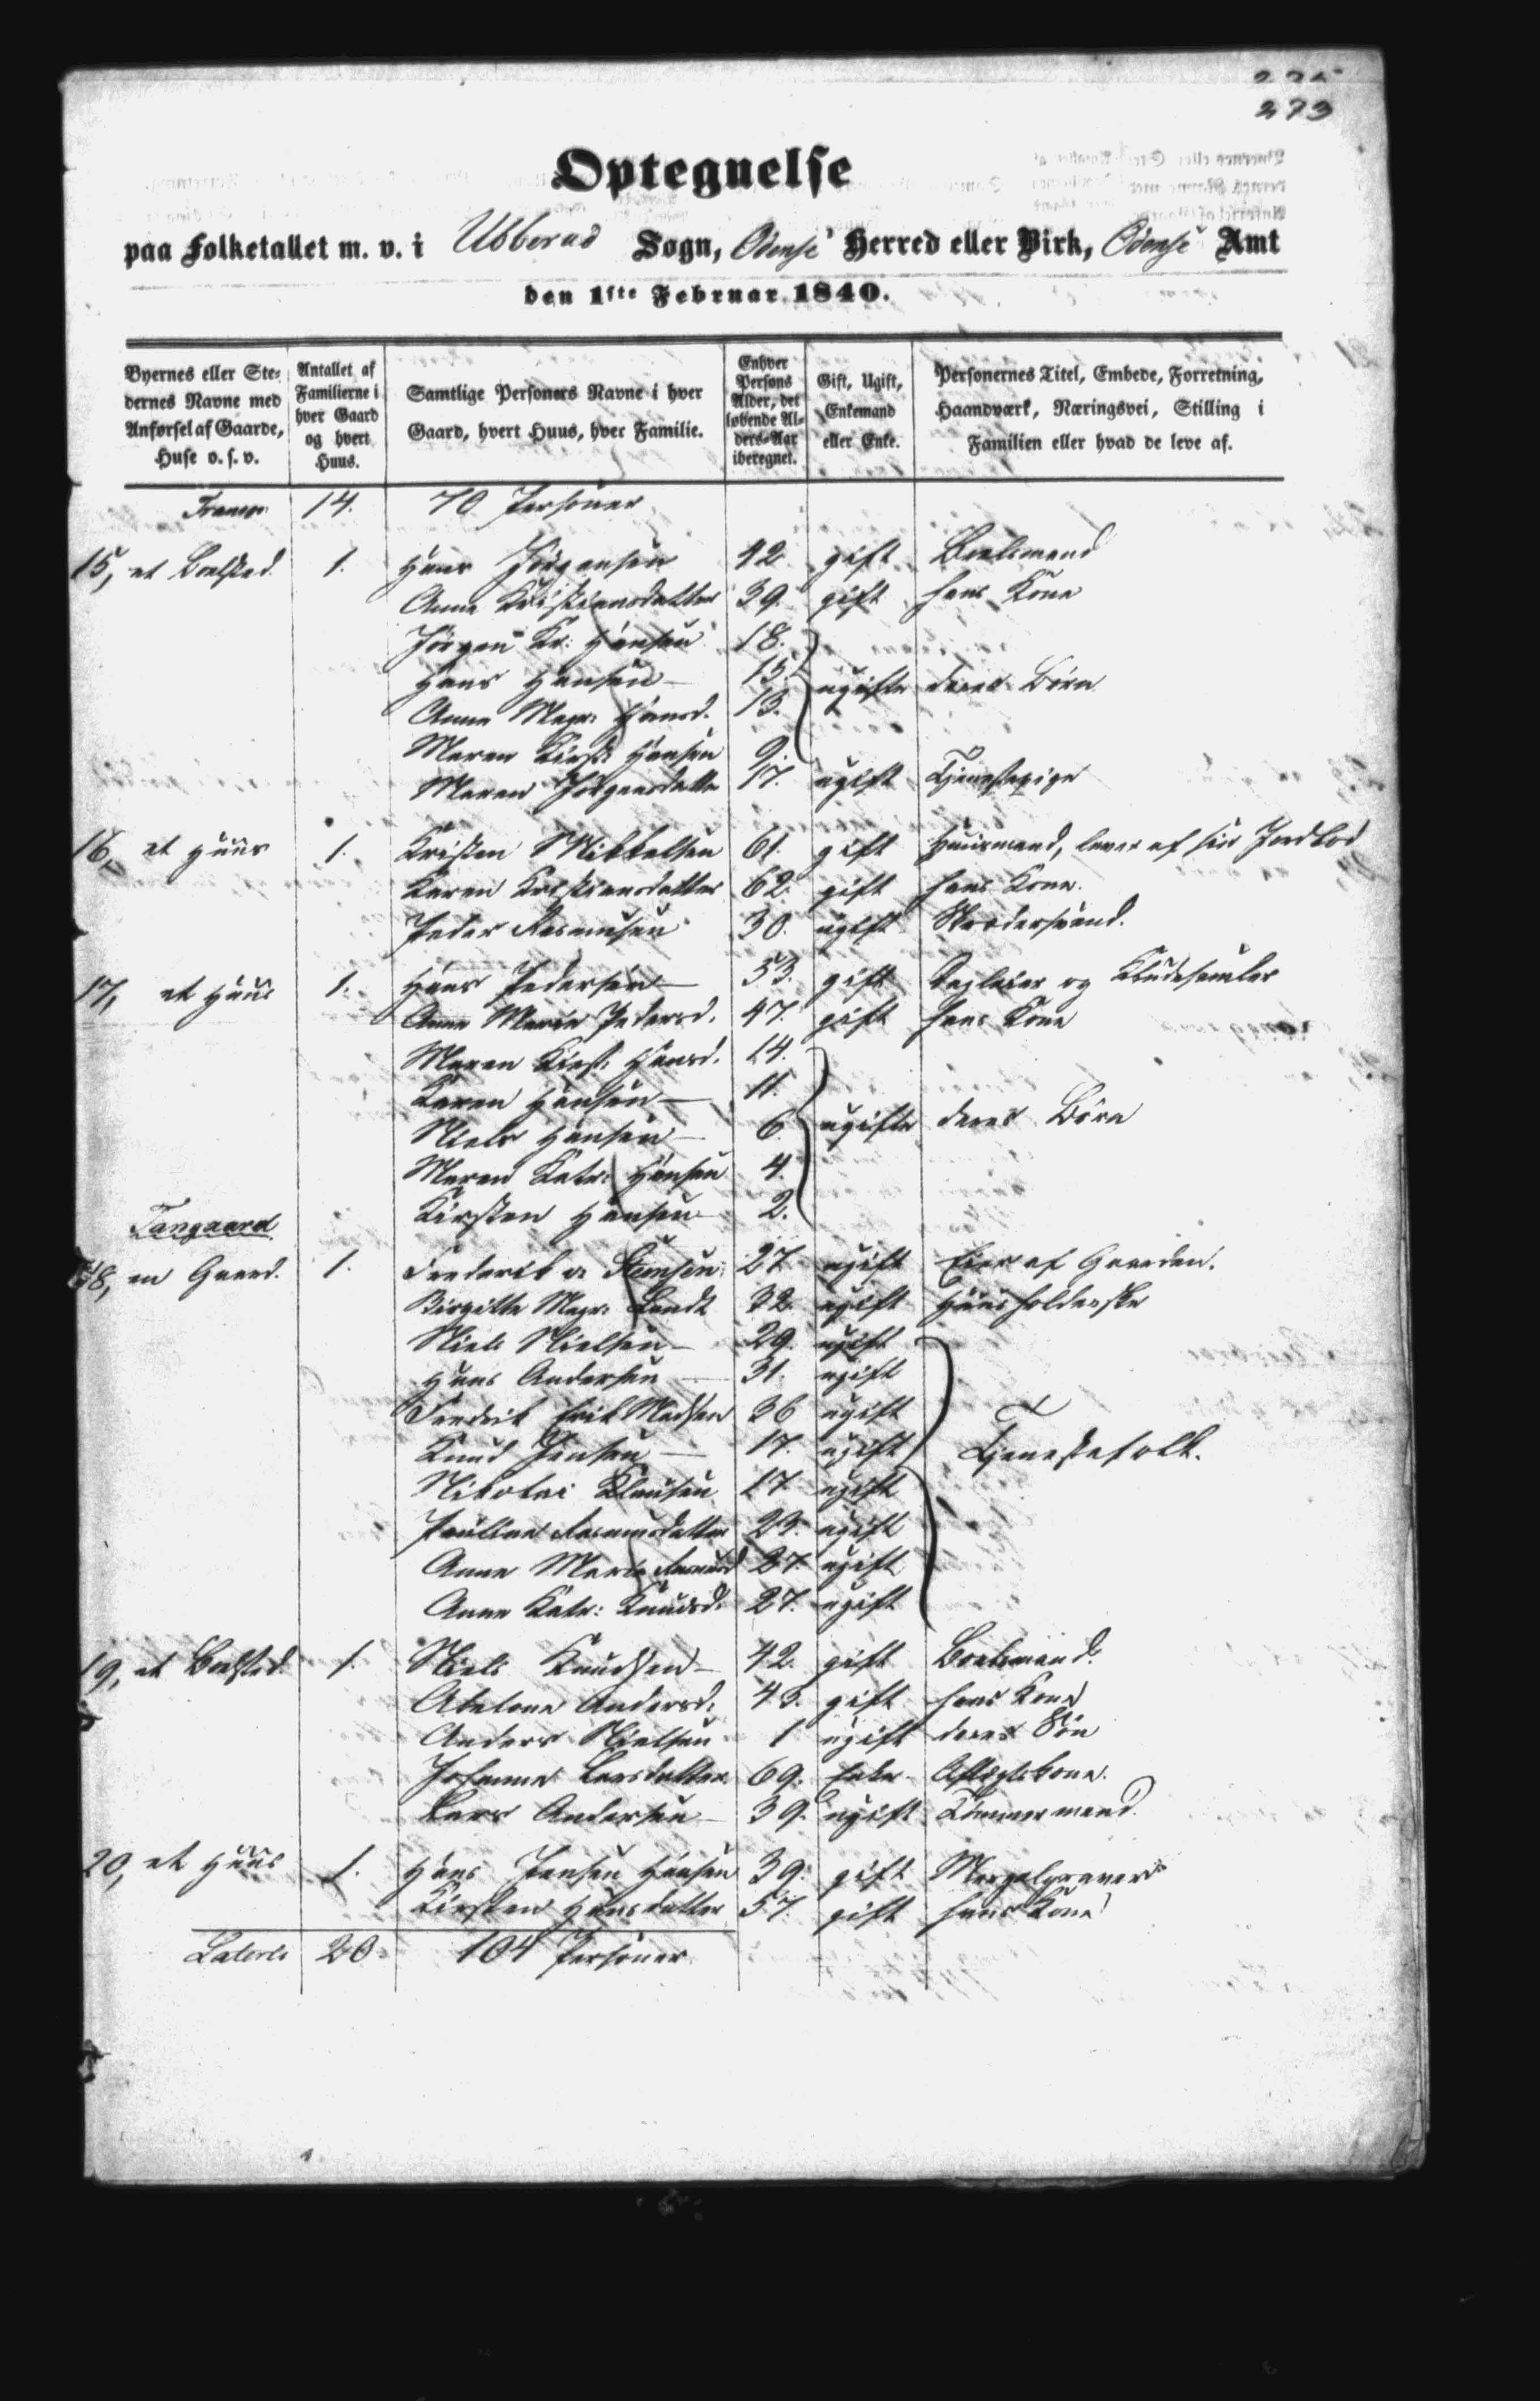 273
Optegnelse
paa Folketallet m. v. i Ubberud Sogn, Odense Herred eller Birk, Odense Amt
den 1ste Februar 1840.
Byernes eller Stedernes Navne med Anførsel af Gaarde, Huse o. s. v. | Antallet af Familierne i hver Gaard og hvert Huus. | Samtlige Personers Navne i hver Gaard, hvert Huus, hver Familie. | Enhver Persons Alder, det løbende Alders-Aar iberegnet. | Gift, Ugift, Enkemand eller Enke. | Personernes Titel, Embede, Forretning, Haandværk, Næringsvei, Stilling i Familien eller hvad de leve af.
Transp: 14. 70 Personer
15, et Boelsted 1. Hans Jørgensen 42. gift Boelsmand
Anne Kristiansdatter 39. gift hans Kone
Jørgen Kr: Hansen 18.
Hans Hansen 15. ugifte deres Børn
Anne Magr: Hansd. 13.
Maren Kirst: Hansen 9.
Maren Jørgensdatter 17. ugift Tjenestepige
16, et Huus 1. Kristen Mikkelsen 61. gift Huusmand, lever af sin Jordlod
Karen Kristiansdatter 62. gift hans Kone.
Peder Rasmusen 30. ugift Skrædersvend.
17, et Huus 1. Hans Pedersen 53. gift Dagleier og Kludesamler
Anne Marie Pedersd. 47. gift hans Kone
Maren Kirst: Hansd. 14.
Karen Hansen 11.
Niels Hansen 6. ugifte deres Børn
Maren Katr: Hansen 4.
Kirsten Hansen 2.
Tangaard
18, en Gaard. 1. Frederik v: Stemsen 27 ugift Eier af Gaarden.
Birgitte Magr: Landt 32. ugift Huusholderske
Niels Nielsen 29. ugift
Hans Andersen 31. ugift
Fredrik Erik Madsen 36 ugift
Knud Jensen 17. ugift Tjenestefolk.
Nikolai Klausen 17 ugift
Pauline Rasmusdatter 23. ugift
Anne Marie Rasmusd 27. ugift
Anne Katr: Knudsd. 27. ugift
19, et Boelsted. 1. Niels Knudsen 42. gift Boelsmand.
Abelone Andersd: 43. gift hans Kone
Anders Nielsen 1 ugift deres Søn
Johanne Larsdatter 69. Enke Aftægtskone.
Lars Andersen 39. ugift Tømmermand.
20, et Huus 1. Hans Jensen Hansen 39. gift Mergelgraver
Kirsten Hansdatter 57. gift hans Kone
Lateris 20. 104 Personer